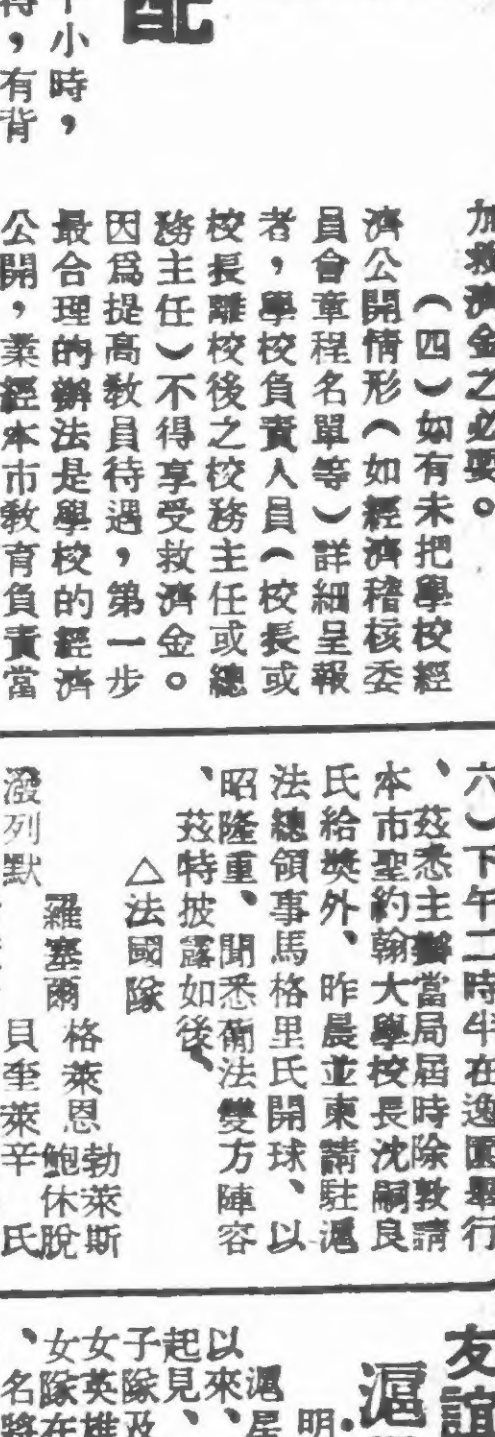 配
十小時，
得，有背
加救濟金之必要。
（四）如有未把學校經
濟公開情形（如經濟稽核委
員會章程名單等）詳細呈報
者，學校負責人員（校長或
校長離校後之校務主任或總
務主任）不得享受救濟金。
因爲提高教員待遇，第一步
最合理的辦法是學校的經濟
公開，業經本市教育負責當
六）下午二時半在逸園舉行
、茲悉主辦當局屆時除敦請
本市聖約翰大學校長沈嗣良
氏給獎外、昨晨並柬請駐滬
法總領事馬格里氏開球、以
昭隆重、聞悉葡法雙方陣容
、茲特披露如後、
△法國隊
勃萊斯
格萊恩　鮑休脫
羅塞爾
貝奎萊辛　氏
潑列默
友誼
滬
明
滬星
以來、
起見、
子隊及
女英雄
女隊在
、名將